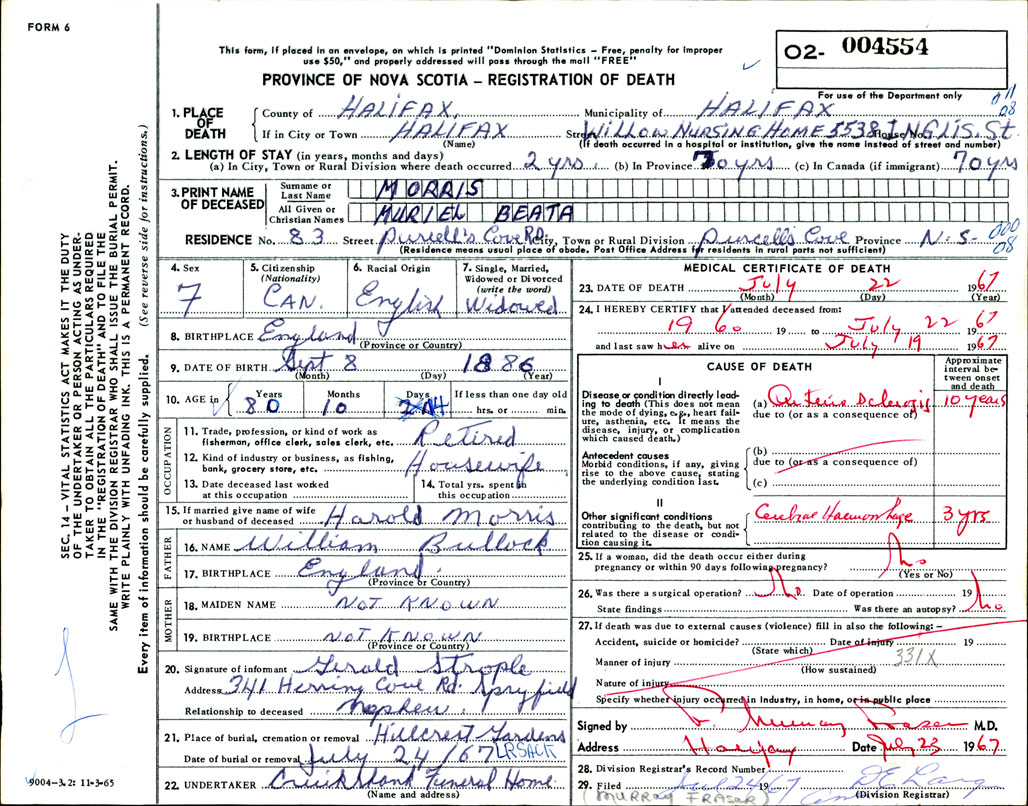 FORM 6
This form, if placed in an envelope, on which is printed "Dominion Statistics – Free, penalty for improper
use $50," and properly addressed will pass through the mail "FREE"
PROVINCE OF NOVA SCOTIA – REGISTRATION OF DEATH
O2- 004554
For use of the Department only
011
08
1. PLACE OF DEATH
County of HALIFAX, Municipality of HALIFAX
If in City or Town HALIFAX Street Willow NURSING HOME 5538 House No. INGLIS. St.
(Name) (If death occurred in a hospital or institution, give the name instead of street and number)
2. LENGTH OF STAY (in years, months and days)
(a) In City, Town or Rural Division where death occurred 2 yrs (b) In Province 70 yrs (c) In Canada (if immigrant) 70 yrs
3. PRINT NAME OF DECEASED
Surname or Last Name MORRIS
All Given or Christian Names MURIEL BEATA
RESIDENCE No. 83 Street Purcell's Cove RD. City, Town or Rural Division Purcells Cove Province N.S.
000
08
(Residence means usual place of abode. Post Office Address for residents in rural parts not sufficient)
SEC. 14 – VITAL STATISTICS ACT MAKES IT THE DUTY
OF THE UNDERTAKER OR PERSON ACTING AS UNDER-
TAKER TO OBTAIN ALL THE PARTICULARS REQUIRED
IN THE "REGISTRATION OF DEATH" AND TO FILE THE
SAME WITH THE DIVISION REGISTRAR WHO SHALL ISSUE THE BURIAL PERMIT.
WRITE PLAINLY WITH UNFADING INK. THIS IS A PERMANENT RECORD.
Every item of information should be carefully supplied. (See reverse side for instructions.)
4. Sex 5. Citizenship (Nationality) 6. Racial Origin 7. Single, Married, Widowed or Divorced (write the word)
F CAN. English Widowed
8. BIRTHPLACE England
(Province or Country)
9. DATE OF BIRTH Sept 8 1886
(Month) (Day) (Year)
10. AGE in Years Months Days If less than one day old
80 10 14 hrs. or min.
OCCUPATION
11. Trade, profession, or kind of work as
fisherman, office clerk, sales clerk, etc. Retired
12. Kind of industry or business, as fishing,
bank, grocery store, etc. Housewife
13. Date deceased last worked at this occupation 14. Total yrs. spent in this occupation
15. If married give name of wife
or husband of deceased Harold Morris
FATHER
16. NAME William Bullock
17. BIRTHPLACE England.
(Province or Country)
MOTHER
18. MAIDEN NAME NOT KNOWN
19. BIRTHPLACE NOT KNOWN
(Province or Country)
20. Signature of informant Gerald Strople
Address 341 Herring Cove Rd. Spryfield
Relationship to deceased Nephew.
21. Place of burial, cremation or removal Hillcrest Gardens
Date of burial or removal July 24/67 LR SACK
22. UNDERTAKER Cruikshank Funeral Home
(Name and address)
9004-3.2: 11-3-65
MEDICAL CERTIFICATE OF DEATH
23. DATE OF DEATH July 22 1967
(Month) (Day) (Year)
24. I HEREBY CERTIFY that I attended deceased from:
1960 19 to July 22 1967
and last saw her alive on July 19 1967
CAUSE OF DEATH
Approximate interval between onset and death
I
Disease or condition directly leading to death (This does not mean the mode of dying, e.g., heart failure, asthenia, etc. It means the disease, injury, or complication which caused death.)
(a) Arterio Sclerosis 10 years
due to (or as a consequence of)
Antecedent causes
Morbid conditions, if any, giving rise to the above cause, stating the underlying condition last.
(b)
due to (or as a consequence of)
(c)
II
Other significant conditions
contributing to the death, but not related to the disease or condition causing it.
Cerebral Haemorrhage 3 yrs
25. If a woman, did the death occur either during
pregnancy or within 90 days following pregnancy? No
(Yes or No)
26. Was there a surgical operation? No. Date of operation 19
State findings Was there an autopsy? No
27. If death was due to external causes (violence) fill in also the following: –
Accident, suicide or homicide? Date of injury 19
(State which)
Manner of injury 331X
(How sustained)
Nature of injury
Specify whether injury occurred in industry, in home, or in public place
Signed by Murray Fraser M.D.
Address Halifax Date July 23 1967
28. Division Registrar's Record Number
29. Filed 19
(Division Registrar)
(MURRAY FRASER)